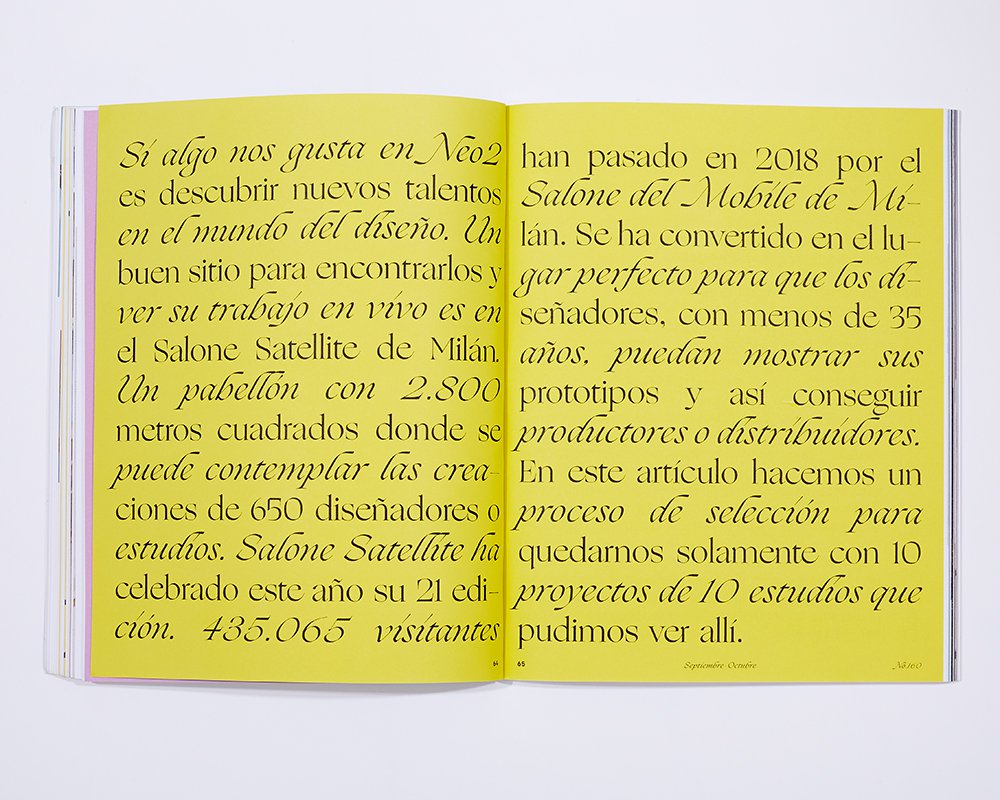 Si algo nos gusta en Neo2
es descubrir nuevos talentos
en el mundo del diseño. Un
buen sitio para encontrarlos y
ver su trabajo en vivo es en
el Salone Satellite de Milán.
Un pabellón con 2.800
metros cuadrados donde se
puede contemplar las crea-
ciones de 650 diseñadores o
estudios. Salone Satellite ha
celebrado este año su 21 edi-
ción. 435.065 visitantes
64
han pasado en 2018 por el
Salone del Mobile de Mi-
lán. Se ha convertido en el lu-
gar perfecto para que los di-
señadores, con menos de 35
años, puedan mostrar sus
prototipos y así conseguir
productores o distribuidores.
En este artículo hacemos un
proceso de selección para
quedarnos solamente con 10
proyectos de 10 estudios que
pudimos ver allí.
65 Septiembre-Octubre No.160